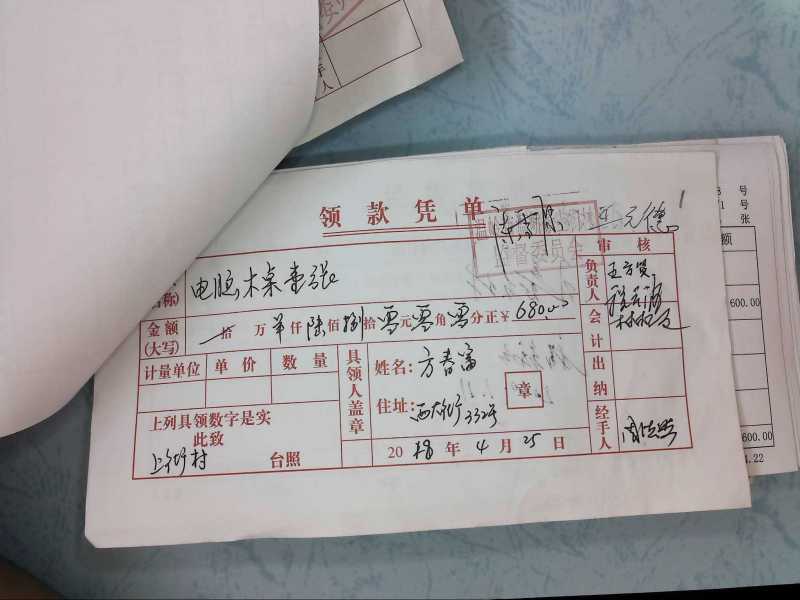 领款凭单
监督委员会
王元德
1
名称) 电脑木桌壹张
审核
金额
(大写) 拾 万 仟 陆 佰 捌 拾 零 元 零 角 零 分正¥ 680.00
负责人
会计
出纳
经手人
计量单位 单价 数量
具领人盖章
姓名: 方春富
住址: 西大街332号
章
上列具领数字是实
此致
村 台照
20 年 4 月 25 日
号
号
张
额
600.00
600.00
4.22
人